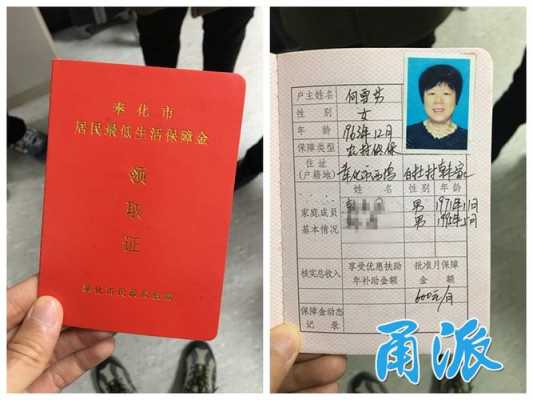 奉化市
居民最低生活保障金
领
取
证
奉化市民政局监制
户主姓名 何雪芳
性别 女
年龄 1963年12月
保障类型 农村低保
住址
(户籍地) 奉化市 村韩家
家庭成员
基本情况
姓名 性别 年龄
韩 男 1971年1月
男
核实总收入
享受优惠扶助
年补助金额
批准月保障
金额
600元/月
保障金动态
记录
甬派